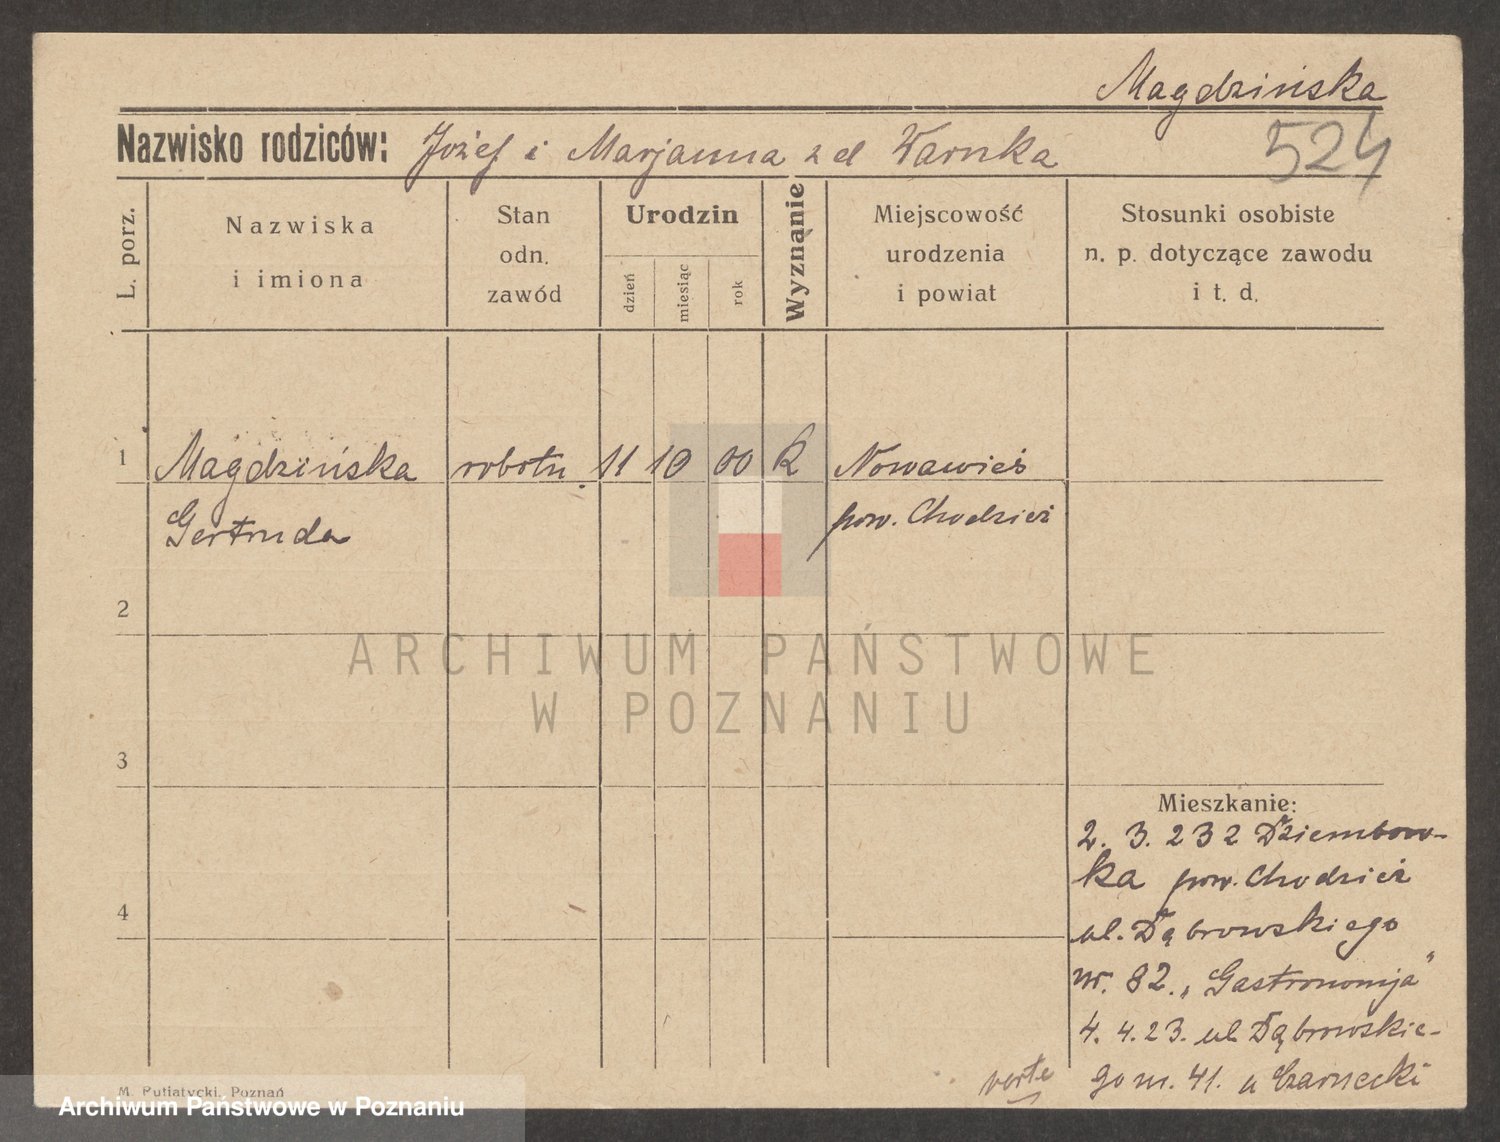 Magdzińska
524
Nazwisko rodziców: Józef i Marjanna z d Warnka
L. porz.
Nazwiska
i imiona
Stan
odn.
zawód
Urodzin
dzień
miesiąc
rok
Wyznanie
Miejscowość
urodzenia
i powiat
Stosunki osobiste
n. p. dotyczące zawodu
i t. d.
1 Magdzińska robotn. 11 10 00 K Nowawieś
Gertruda pow. Chodzież
2
ARCHIWUM PAŃSTWOWE
W POZNANIU
3
4
Mieszkanie:
2. 3. 232 Dziembow-
ka pow. Chodzież
ul. Dąbrowskiego
nr. 82. „Gastronomja"
4. 4. 23. ul Dąbrowskie-
go m. 41. u Czarnecki
verte
M. Putiatycki, Poznań
Archiwum Państwowe w Poznaniu